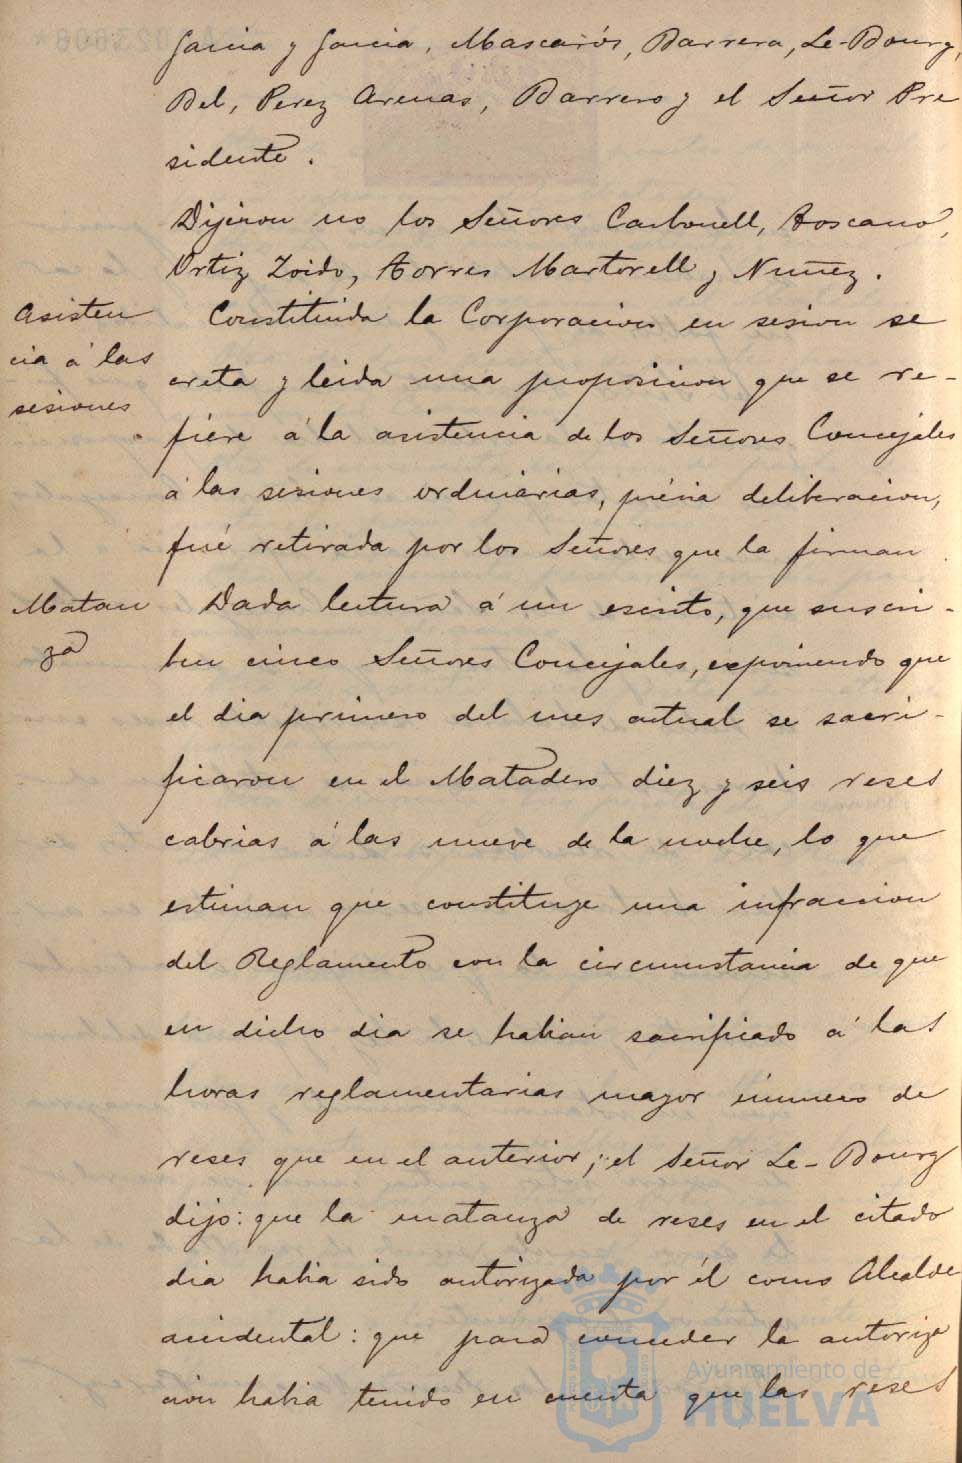 Garcia y Garcia, Mascarós, Barrera, Le-Bourg,
Bel, Perez Arenas, Barrero y el Señor Pre
sidente.
Dijeron no los Señores Carbonell, Toscano,
Ortiz Zoido, Torres Martorell y Nuñez.
Asisten
cia á las
sesiones
Constituida la Corporacion en sesion se
creta y leida una proposicion que se re-
fiere á la asistencia de los Señores Concejales
á las sesiones ordinarias, prévia deliberacion,
fué retirada por los Señores que la firman.
Matan
za
Dada lectura á un escrito, que suscri-
ben cinco Señores Concejales, exponiendo que
el dia primero del mes actual se sacri-
ficaron en el Matadero diez y seis reses
cabrias á las nueve de la noche, lo que
estiman que constituye una infraccion
del Reglamento con la circunstancia de que
en dicho dia se habian sacrificado á las
horas reglamentarias mayor número de
reses que en el anterior; el Señor Le-Bourg
dijo: que la matanza de reses en el citado
dia habia sido autorizada por él como Alcalde
accidental: que para conceder la autoriza
ción habia tenido en cuenta que las reses
Ayuntamiento de
HUELVA